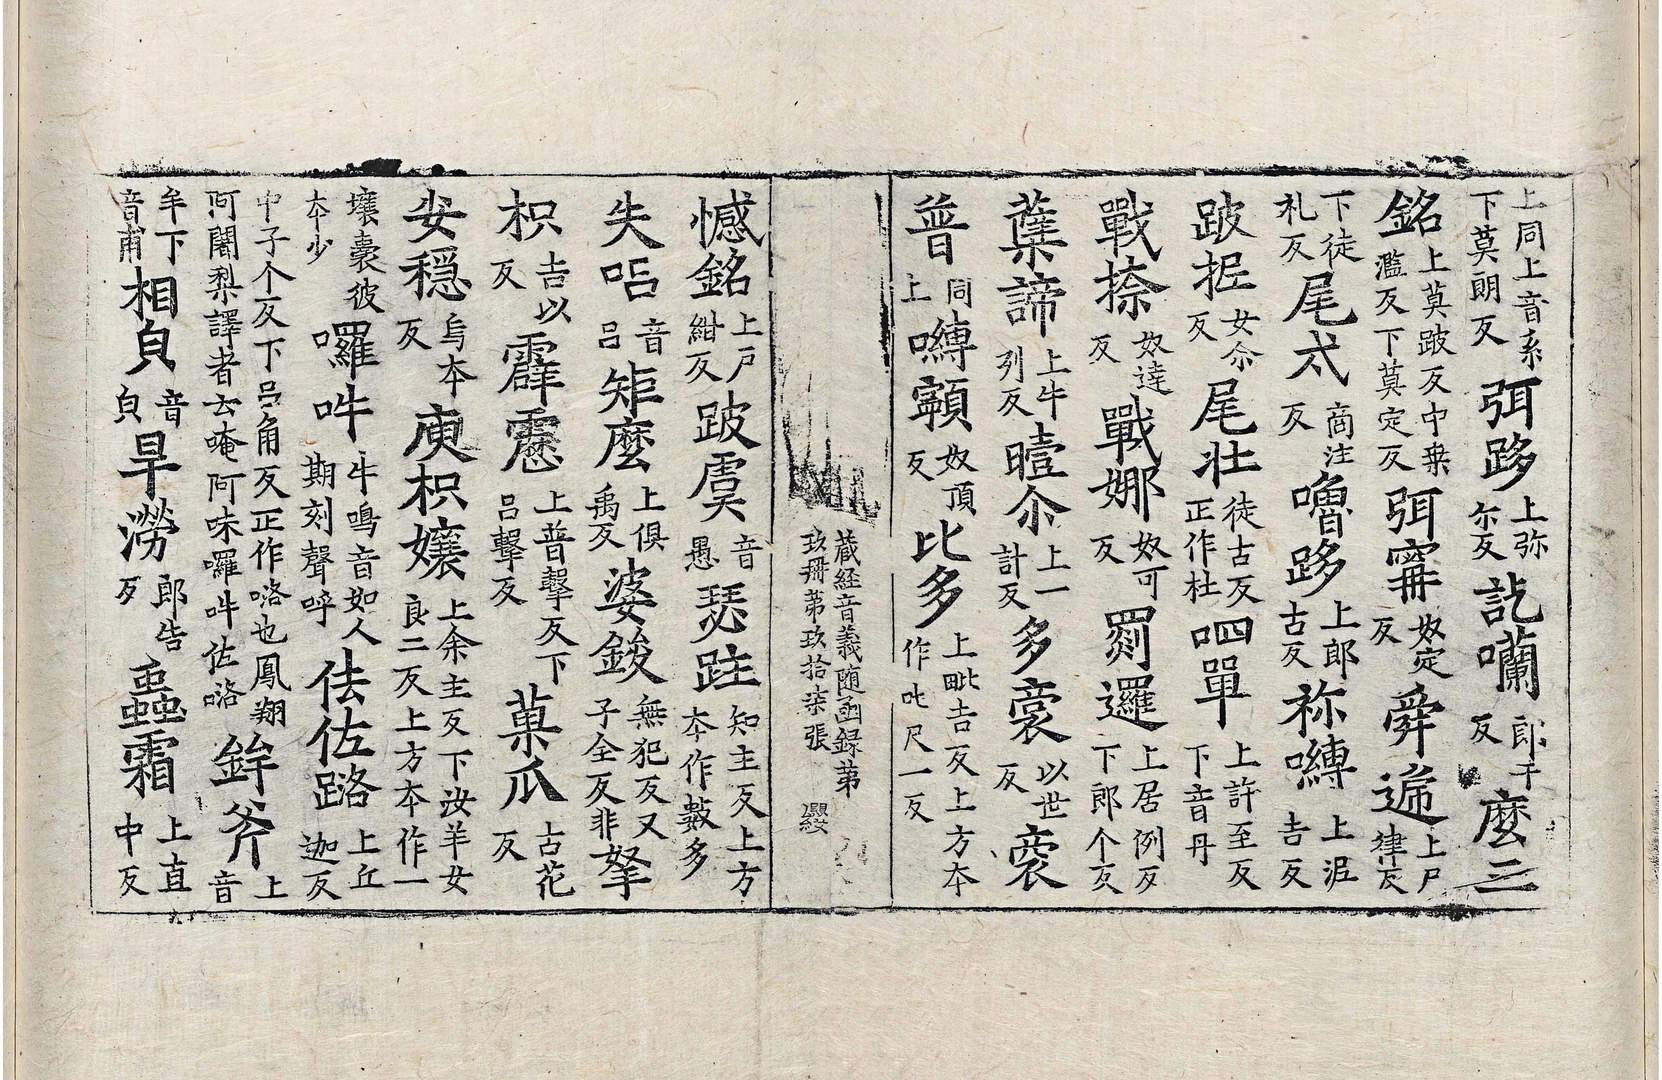 上同上音系下莫朗反弭哆上弥尔反訖囒郎干反麼三
銘上莫跛反中桒濫反下莫定反弭寗奴定反舜递上尸律反
下徒礼反尾弍商注反嚕哆上郎古反祢囀上泥吉反
跛抳女尒反尾壮徒古反正作杜呬單上許至反下音丹
戰捺奴達反戰娜奴可反罽邏上居例反下郎个反
蘖諦上牛列反曀尒上一計反多裔以世反裔
普同上囀奴頂反比多上毗吉反上方本作吡尺一反
藏経音義随函録第
玖冊第玖拾柒張
憾銘上戸紺反跛虞音愚瑟跓知主反上方本作數多
失呂音吕矩麼上俱禹反婆鋑無犯反又子全反非拏
枳吉以反霹靂上普擊反下吕擊反菓爪古花反
安穏烏本反庾枳孃上余主反下汝羊女良二反上方本作一
壤囊彼本少囉吽牛鳴音如人期刻聲呼佉佐路上丘迦反
中子个反下吕角反正作咯也鳳翔阿闍梨譯者云唵阿味囉吽佐咯鉾斧上音
牟下音甫相貟音貟旱澇郎告反蟲霜上直中反